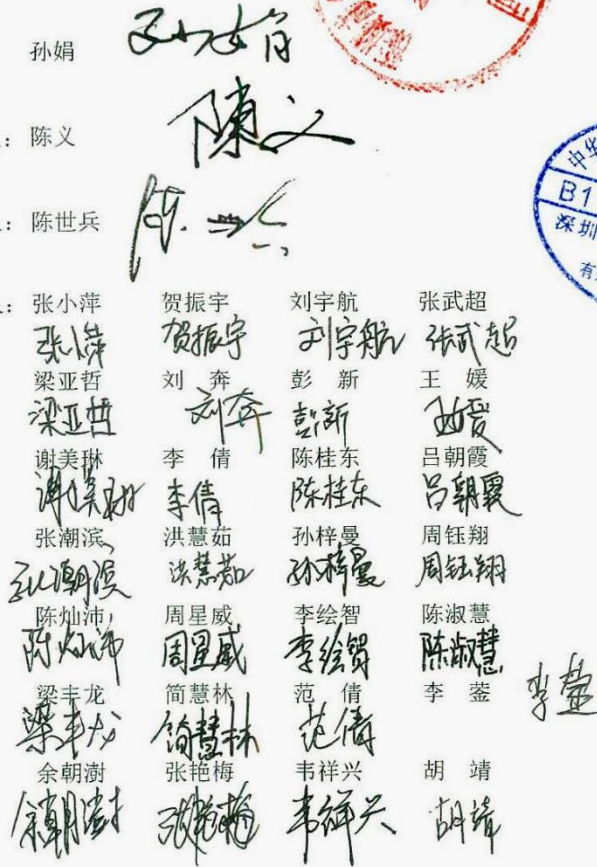 孙娟 孙娟
：陈义 陈义
：陈世兵 陈世兵
中华
B1
深圳
有
：张小萍 贺振宇 刘宇航 张武超
张小萍 贺振宇 刘宇航 张武超
梁亚哲 刘 奔 彭 新 王 媛
梁亚哲 刘奔 彭新 王媛
谢美琳 李 倩 陈桂东 吕朝霞
谢美琳 李倩 陈桂东 吕朝霞
张潮滨 洪慧茹 孙梓曼 周钰翔
张潮滨 洪慧茹 孙梓曼 周钰翔
陈灿沛 周星威 李绘智 陈淑慧
陈灿沛 周星威 李绘智 陈淑慧
梁丰龙 简慧林 范 倩 李 蓥
梁丰龙 简慧林 范倩 李蓥
余朝澍 张艳梅 韦祥兴 胡 靖
余朝澍 张艳梅 韦祥兴 胡靖